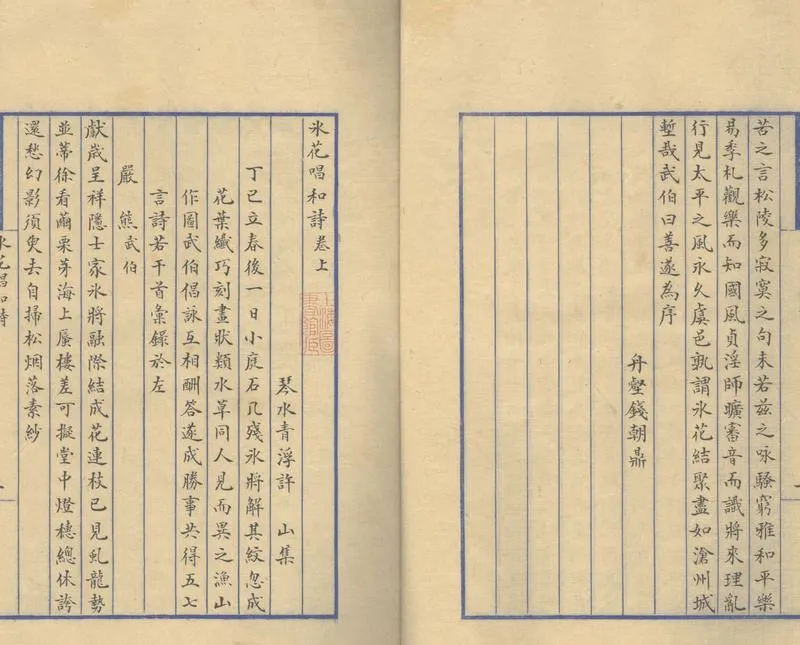 苦之言松陵多寂寞之句未若兹之咏騷窮雅和平樂
易季札觀樂而知國風貞淫師曠審音而識將來理亂
行見太平之風永久虞邑孰謂氷花結聚盡如滄州城
塹哉武伯曰善遂為序
舟壑錢朝鼎
氷花唱和詩卷上
琴水青浮許山集
丁巳立春後一日小庭石几殘氷將解其紋忽成
花葉纖巧刻畫狀類水草同人見而異之漁山
作圖武伯倡詠互相酬答遂成勝事共得五七
言詩若干首彙錄於左
嚴熊武伯
獻歲呈祥隱士家氷將融際結成花連枝已見虬龍勢
並蒂徐看繭栗芽海上蜃樓差可擬堂中燈穗總休誇
還愁幻影須臾去自掃松烟落素紗
氷花唱和詩